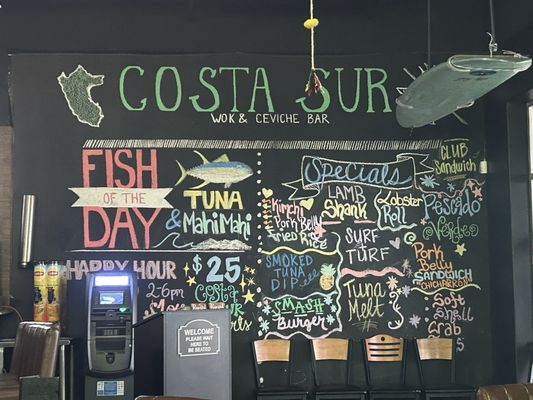 COSTA SUR
WOK & CEVICHE BAR
FISH
OF THE
DAY
TUNA
& MahiMahi
HAPPY HOUR
2-6pm
$25
Specials
Kimchi
Pork Belly
Fried Rice
LAMB
SHANK
Lobster
Roll
SURF
TURF
SMOKED
TUNA
DIP
SMASH
Burger
Tuna
Melt
CLUB
SANDWICH
Pescado
Verde
Pork
Belly
SANDWICH
CHICHARRON
Soft
Shell
Crab
WELCOME
PLEASE WAIT
HERE
TO BE SEATED